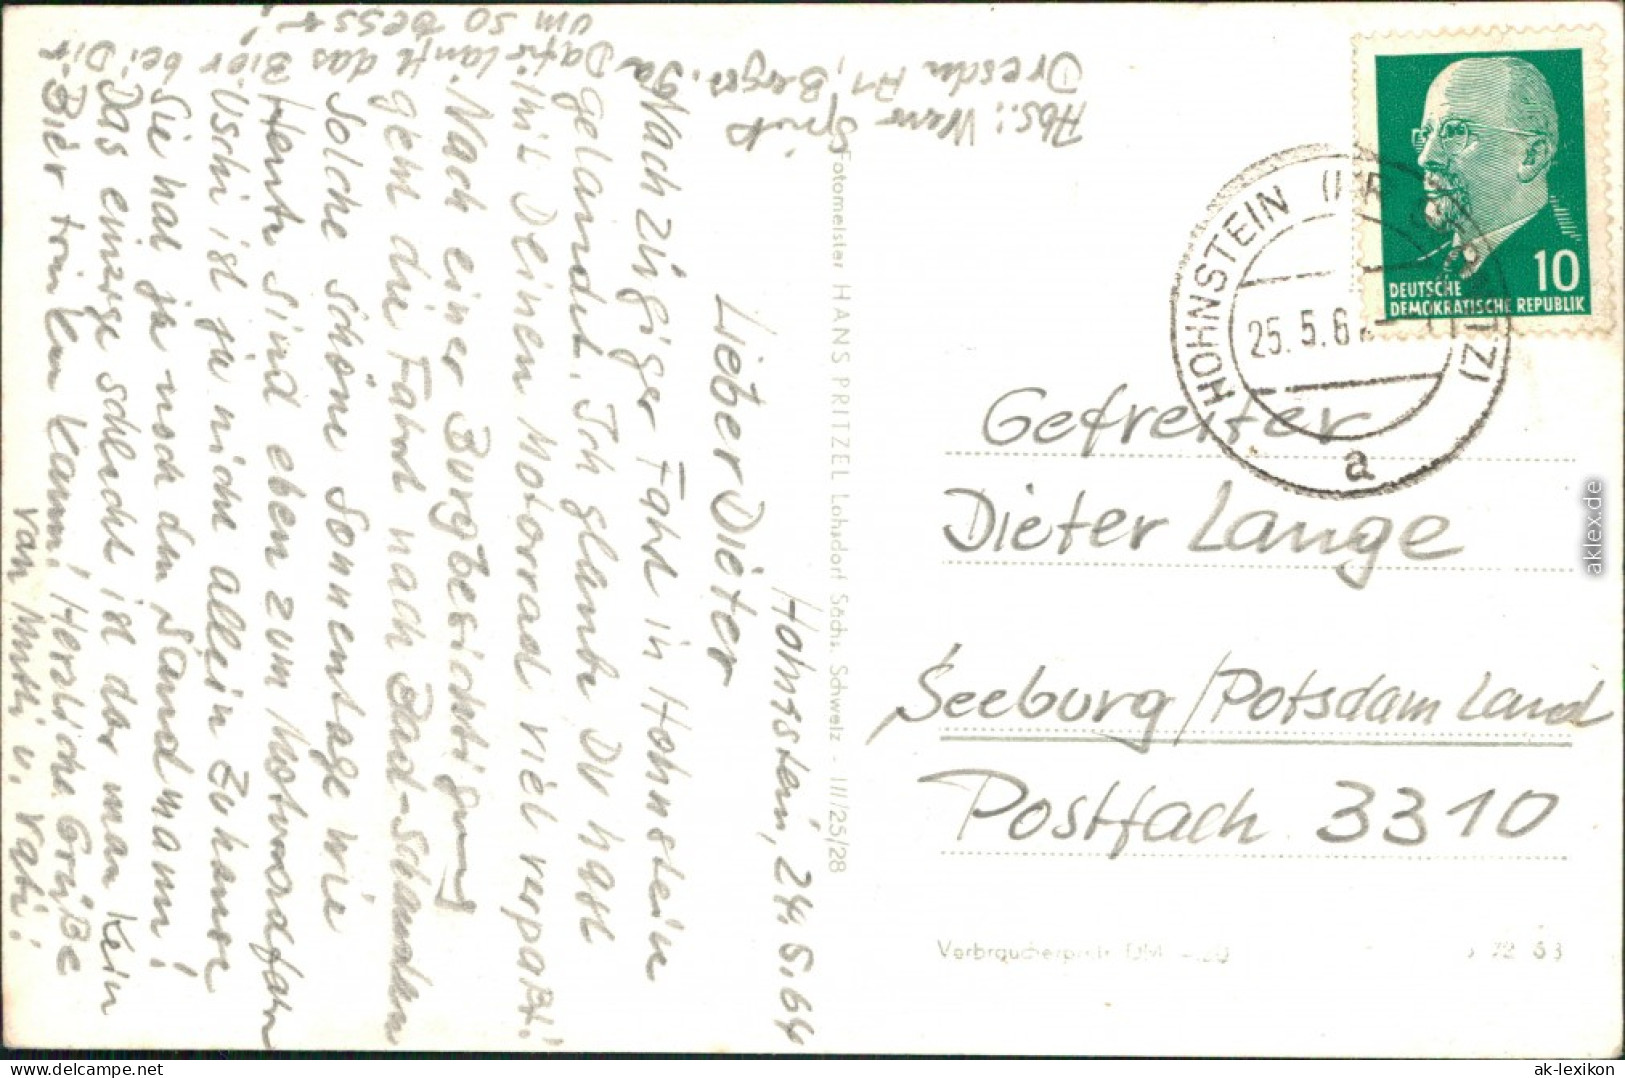 Hohnstein, 24.5.64
Lieber Dieter
Nach zügiger Fahrt in Hohnstein
gelandet. Ich glaube Du hast
mit Deinem Motorrad viel verpaßt!
Nach einer Burgbesichtigung
geht die Fahrt nach Bad-Schandau
Solche schöne Sonnentage wie
Heute sind eben zum Motorradfahren
Uschi ist ja nicht allein Zuhause
Sie hat ja noch den Sandmann!
Das einzige schlecht ist das man kein
Bier trinken kann! Herzliche Grüße
von Mutti u. Vati!
Dafür läuft das Bier bei Dir
um so besser!
Abs.:
Dresden A1,
Fotomeister HANS PRITZEL Lohsdorf Sächs. Schweiz - III/25/28
DEUTSCHE
DEMOKRATISCHE REPUBLIK
10
HOHNSTEIN (KR
25.5.6
a
Gefreiter
Dieter Lange
Seeburg/Potsdam Land
Postfach 3310
Verbraucherpreis DM
aklex.de
www.delcampe.net
ak-lexikon